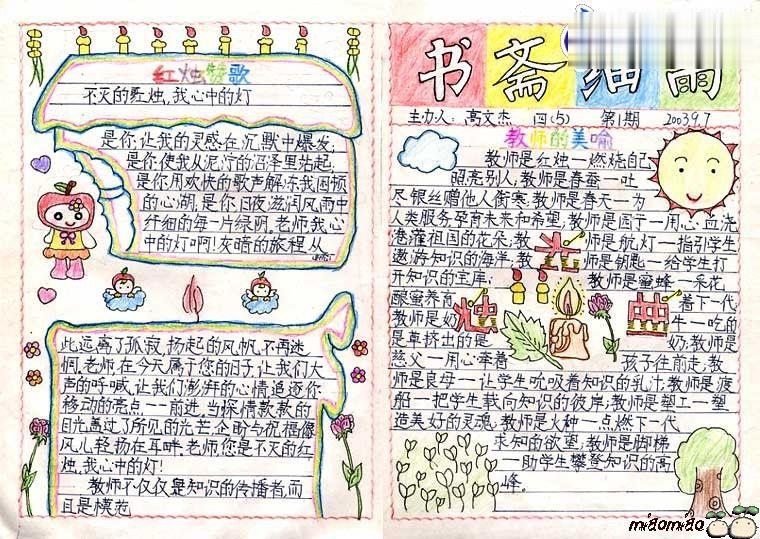 红烛颂歌
不灭的红烛,我心中的灯
是你,让我的灵感在沉默中爆发;
是你,使我从泥泞的沼泽里站起;
是你,用欢快的歌声解冻我困顿
的心湖,是你,日夜滋润风雨中
纤细的每一片绿阴,老师,我心
中的灯啊!灰暗的旅程,从
此远离了孤寂,扬起的风帆,不再迷
惘,老师,在今天属于您的日子,让我们大
声的呼喊,让我们澎湃的心情追逐你
移动的亮点——前进,当深情款款的
目光,盖过了所见的光芒,企盼与祝福像
风儿,轻扬在耳畔,老师,您是不灭的红
烛,我心中的灯!
教师不仅仅是知识的传播者,而
且是模范
书斋细雨
主办人:高文杰 四(5) 第1期 2003.9.7
教师的美喻
教师是红烛—燃烧自己
照亮别人;教师是春蚕—吐
尽银丝赠他人御寒;教师是春天—为
人类服务,孕育未来和希望;教师是园丁—用心血浇
灌祖国的花朵;教师是航灯—指引学生
遨游知识的海洋;教师是钥匙—给学生打
开知识的宝库;教师是蜜蜂—采花
酿蜜养育着下一代
教师是奶牛—吃的
是草挤出的是奶;教师是
慈父—用心牵着孩子往前走;教
师是良母—让学生吮吸着知识的乳汁;教师是渡
船—把学生载向知识的彼岸;教师是塑工—塑
造美好的灵魂;教师是火种—点燃下一代
求知的欲望;教师是脚梯
—助学生攀登知识的高
峰。
miaomiao